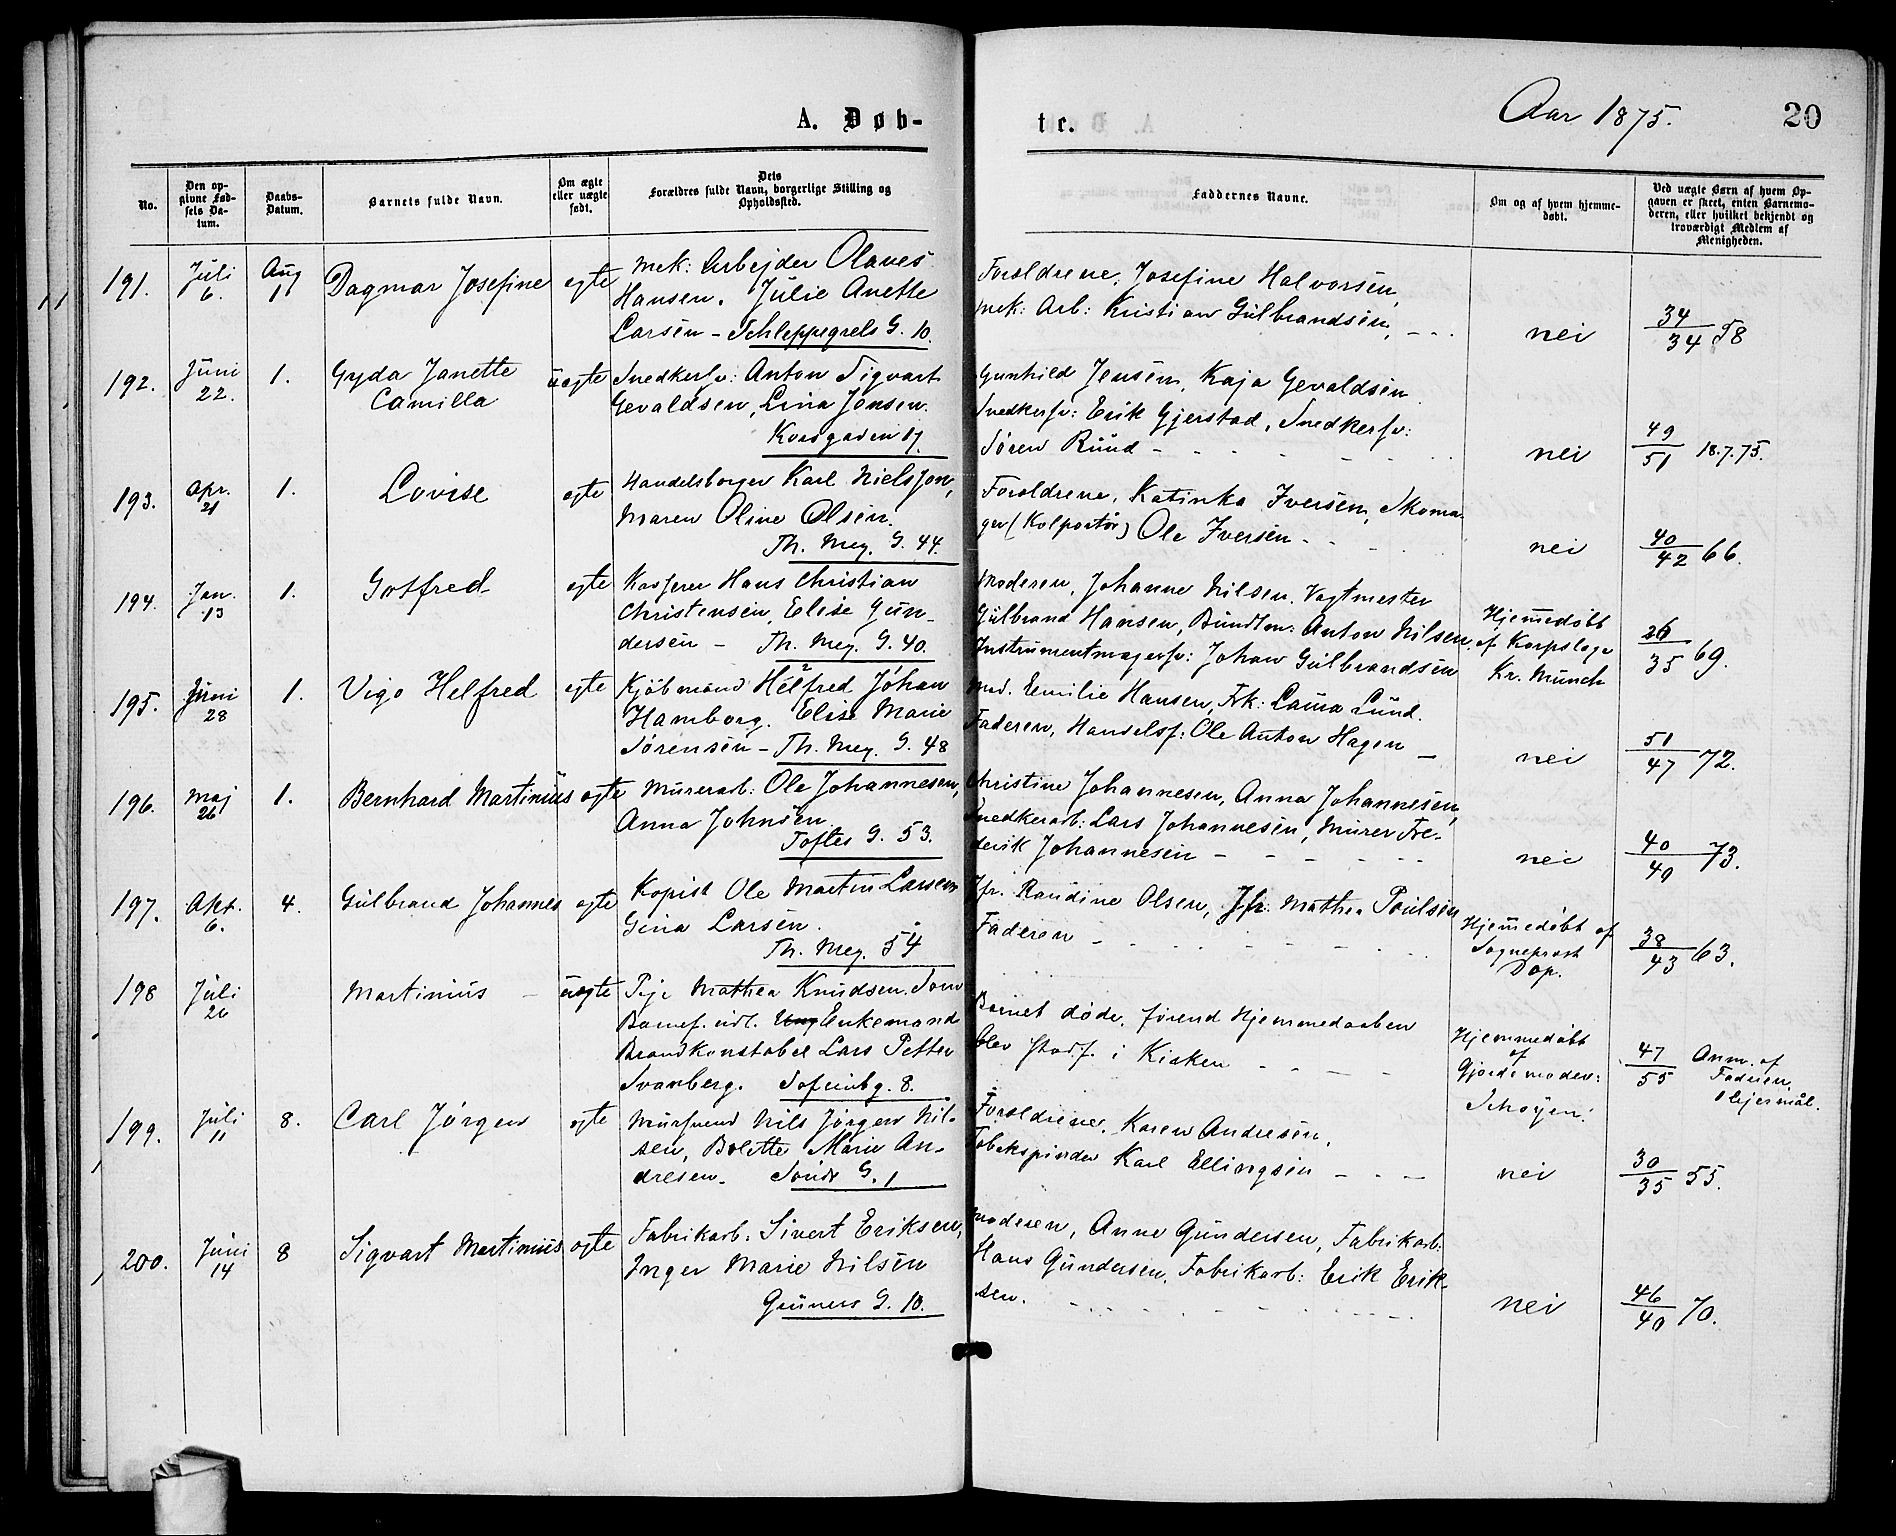 A. Døb-
te.
Aar 1875.
20
No.
Den op-
givne Fød-
sels Da-
tum.
Daabs-
Datum.
Barnets fulde Navn.
Om ægte
eller uægte
født.
Dets
Forældres fulde Navn, borgerlige Stilling og
Opholdssted.
Faddernes Navne.
Om og af hvem hjemme-
døbt.
Ved uægte Børn af hvem Op-
gaven er skeet, enten Barnemo-
deren, eller hvilket bekjendt og
troværdigt Medlem af
Menigheden.
191.
Juli
6.
Aug
1
Dagmar Josefine
egte
Mek: Arbejder Olaves
Hansen. Julie Anette
Larsen - Schleppegrels G. 10.
Foreldrene, Josefine Halvorsen,
Mek: Arb: Kristian Gulbrandsen,
nei
34
34 58
192.
Juni
22.
1.
Gyda Janette
Camilla
uegte
Snedkersv: Anton Sigvart
Gevaldsen, Lina Jensen.
Korsgaden 17.
Gunhild Jensen, Kaja Gevaldsen
Snedkersv: Erik Gjerstad, Snedkersv:
Søren Ruud
nei
49
51 18.7.75.
193.
Apr.
21
1.
Lovise
egte
Handelsborger Karl Nielsson,
Maren Oline Olsen.
Th. Mey. G. 44.
Foreldrene, Katinka Iversen, Skoma-
ger (Kolportör) Ole Iversen
nei
40
42 66.
194.
Jan.
13
1.
Gotfred
egte
Kasserer Hans Christian
Christensen, Elise Gun-
dersen - Th. Mey. G. 40.
Moderen, Johanne Nilsen. Vagtmester
Gulbrand Hansen, Bundtm: Anton Nilsen,
Instrumentmagersv: Johan Gulbrandsen
Hjemmedøbt
af Korpslæge
Kr. Munch
26
35 69.
195.
Juni
28
1.
Vigo Helfred
egte
Kjøbmand Helfred Johan
Hamborg. Elise Marie
Sørensen - Th. Mey. G. 48
Mad. Emilie Hansen, Frk: Laura Lund.
Faderen, Handelsf: Ole Anton Hagen
nei
51
47 72.
196.
Maj
26
1.
Bernhard Martinius
egte
Murerarb: Ole Johannesen,
Anna Johnsen
Toftes G. 53.
Christine Johannesen, Anna Johannesen,
Snedkerarb: Lars Johannesen, Murer Fre-
derik Johannesen
nei
40
49 73.
197.
Okt.
6.
4.
Gulbrand Johannes
egte
Kopist Ole Martin Larsen
Gina Larsen.
Th. Mey. 54
Jfr. Randine Olsen, Jfr. Mathea Poulsen
Faderen
Hjemmedøbt af
Sogneprest
Dop.
38
43 63.
198
Juli
26
Martinius
uegte
Pige Mathea Knudsen. Som
Barnef. udl. Enkemand
Brandkonstabel Lars Petter
Svanberg. Sofienbg. 8.
Barnet døde, førend Hjemmedaaben
blev stadf. i Kirken
Hjemmedøbt
af
Gjordemoder:
Schøyen.
47
55
Anm. af
Faderen.
1 Lejermål.
199.
Juli
11
8.
Carl Jørgen
egte
Mursvend Nils Jørgen Nil-
sen, Bolette Marie An-
dresen. G. 1
Foreldrene, Karen Andresen,
Tobakspinder Karl Ellingsen
nei
30
35 55.
200.
Juni
14
8
Sigvart Martinius
egte
Fabrikarb: Sivert Eriksen,
Inger Marie Nilsen
Gruners G. 10.
Moderen, Anne Gundersen, Fabrikarb:
Hans Gundersen, Fabrikarb: Erik Erik-
sen.
nei
46
40 70.